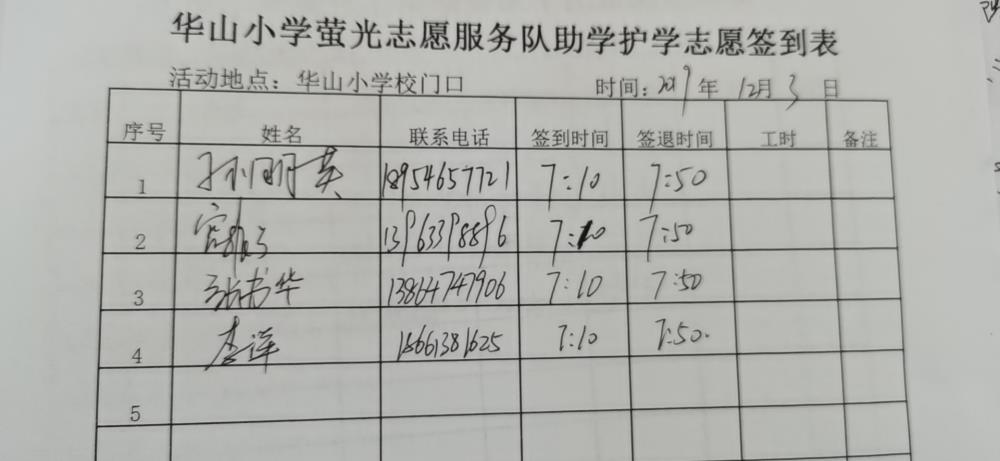 华山小学萤光志愿服务队助学护学志愿签到表
活动地点：华山小学校门口 时间：2019年 12月 3 日
序号 姓名 联系电话 签到时间 签退时间 工时 备注
1 孙明英 18954657721 7:10 7:50
2 13963398896 7:10 7:50
3 张书华 13864747906 7:10 7:50
4 李萍 18661381625 7:10 7:50.
5